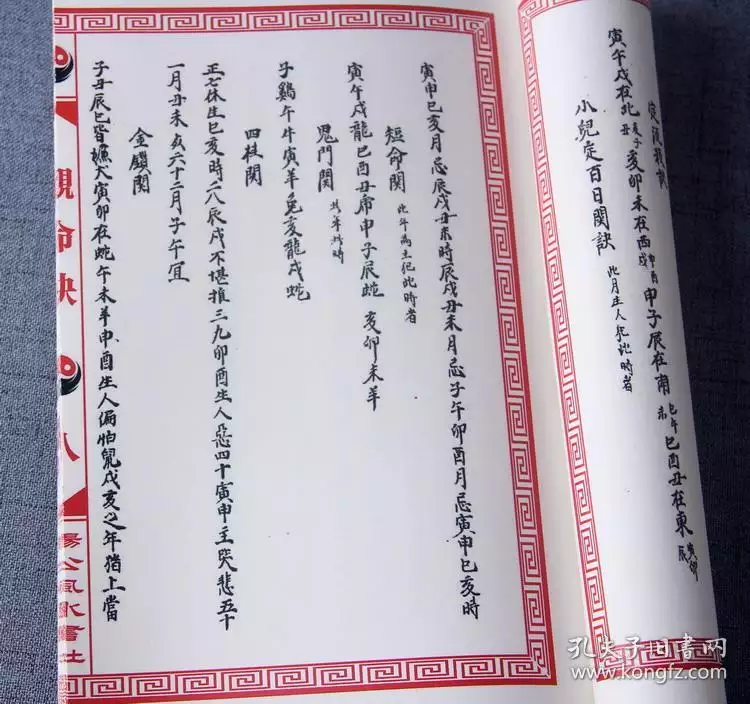 寅午戌在北 亥子丑 亥卯未在西 申酉戌 申子辰在南 巳午未 巳酉丑在東 寅卯辰
小兒定百日関訣 此月生人犯此時者
寅申巳亥月忌辰戌丑未時辰戌丑未月忌子午卯酉月忌寅申巳亥時
短命関 此年為主犯此時者
寅午戌龍巳酉丑席申子辰蛇 亥卯未羊
鬼門関 此年此時
子鷄午牛寅羊兔亥龍戌蛇
四柱関
正七休生巳亥時二八辰戌不堪推三九卯酉生人惡四十寅申主哭悲五十
一月丑未六十二月子午宜
金鎖関
子丑辰巳皆嫌犬寅卯在蛇午未羊申酉生人偏怕鬼戌亥之年猪上當
觀命訣
八
楊公風水書社
孔夫子旧书网
www.kongfz.com